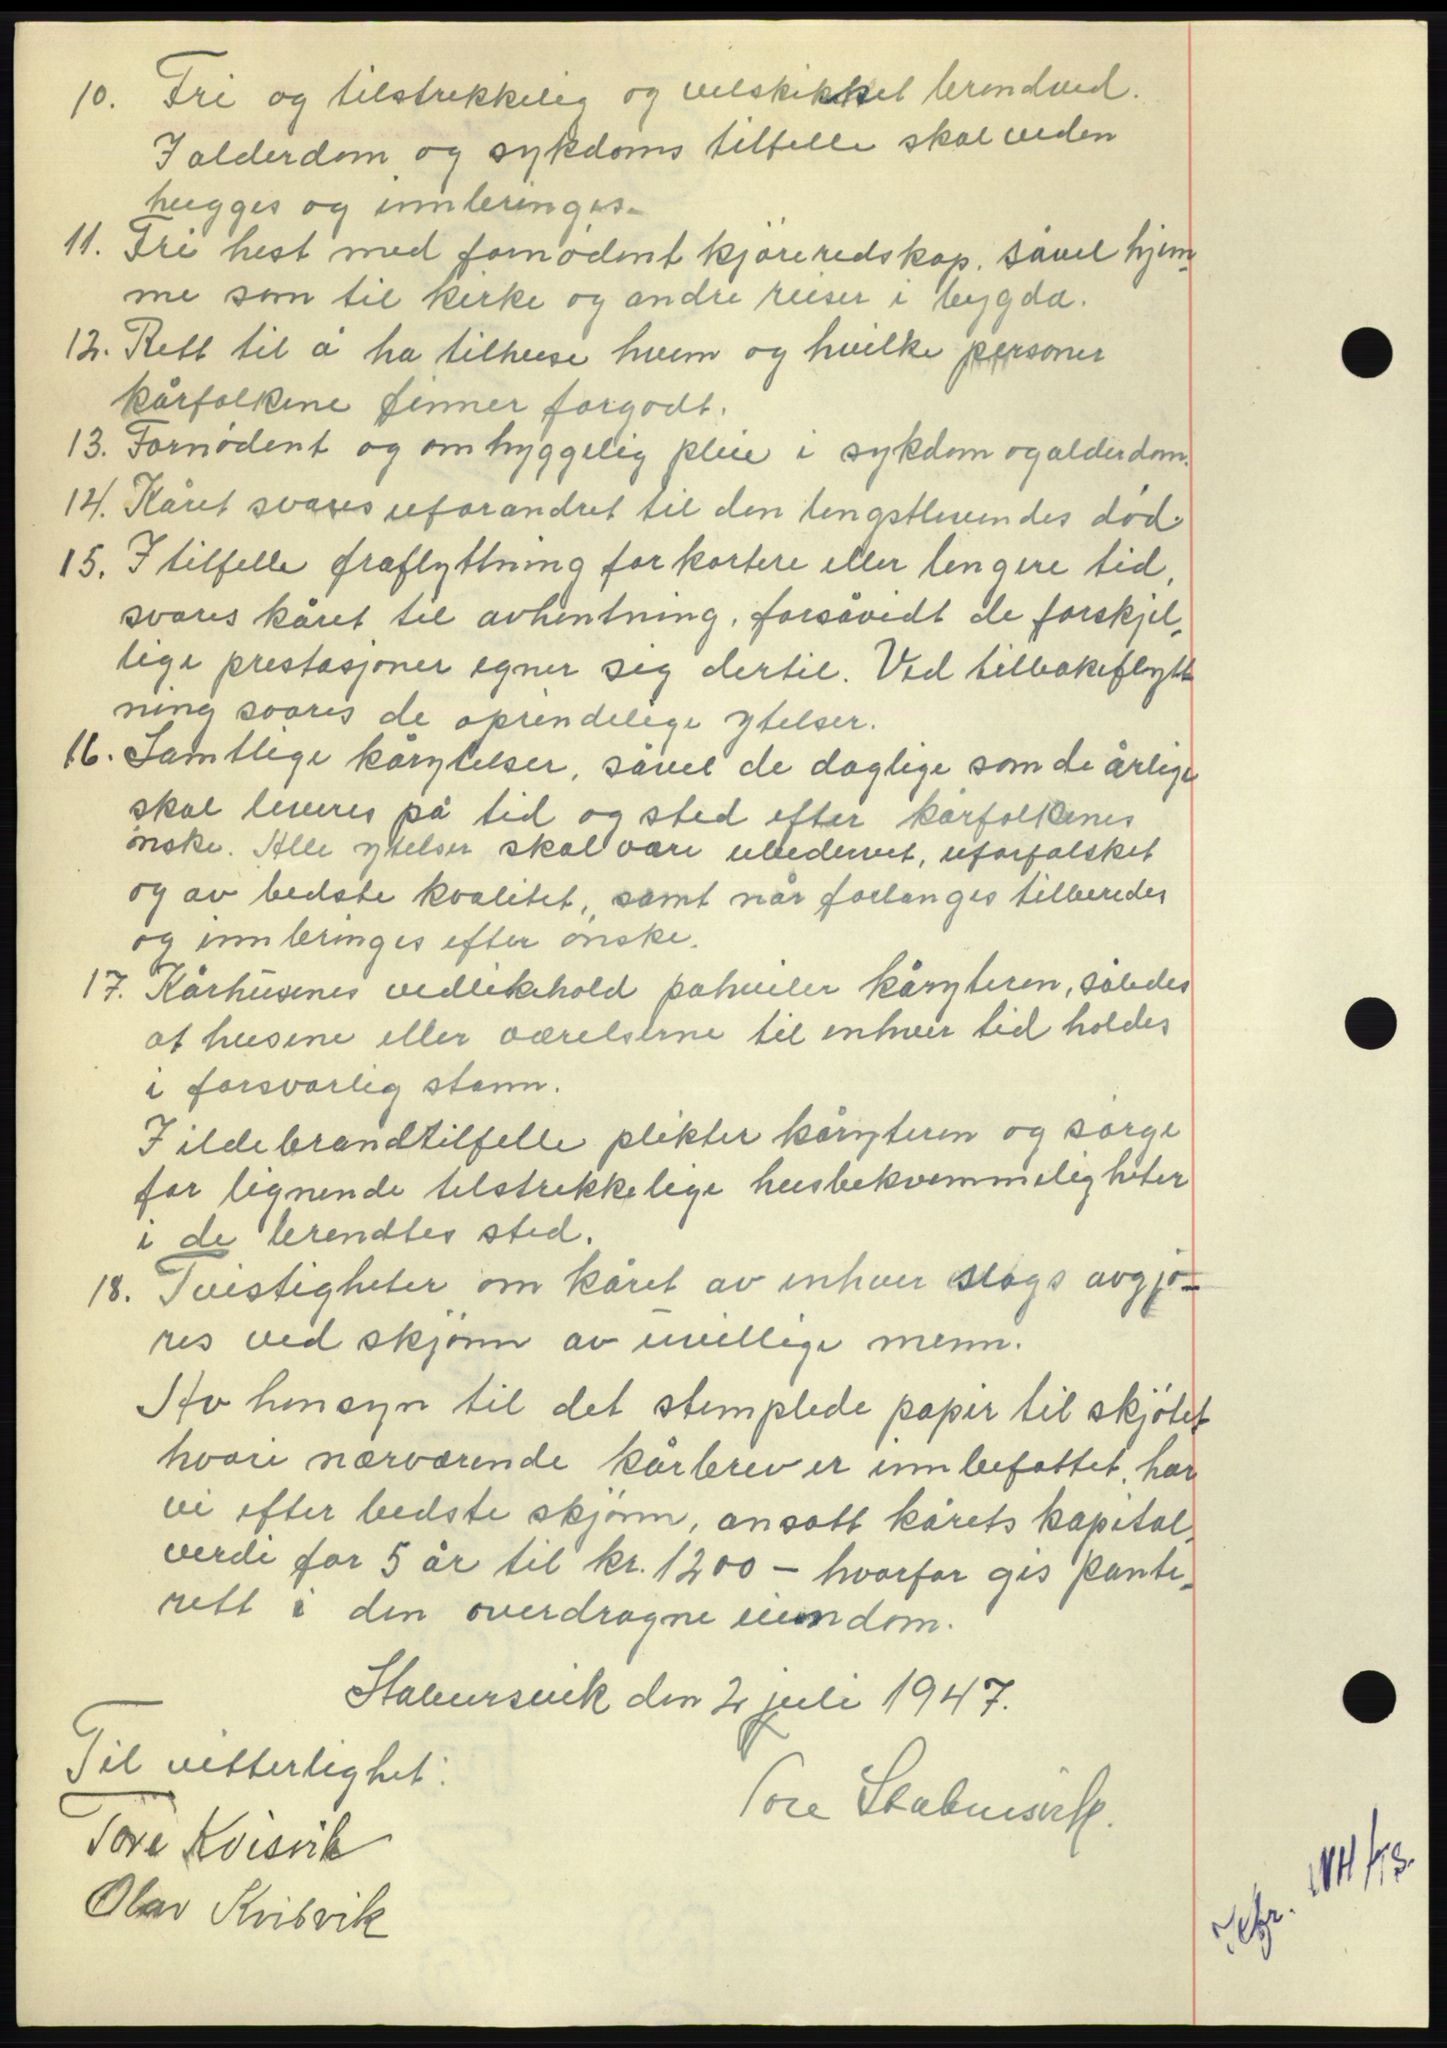 10. Fri og tilstrekkelig og velskikket brendved.
I alderdom og sykdoms tilfelle skal veden
hugges og innbringes.
11. Fri hest med fornødent kjøreredskap. såvel hjem-
me som til kirke og andre reiser i bygda.
12. Rett til å ha tilhuse hvem og hvilke personer
kårfolkene finner forgodt.
13. Fornødent og omhyggelig pleie i sykdom og alderdom.
14. Kåret svares uforandret til den lengstlevendes død.
15. I tilfelle fraflyttning for kortere eller lengere tid,
svares kåret til avhentning, forsåvidt de forskjel-
lige prestasjoner egner sig dertil. Ved tilbakeflytt-
ning svares de oprindelige ytelser.
16. Samtlige kårytelser, såvel de daglige som de årlige
skal leveres på tid og sted efter kårfolkenes
ønske. Alle ytelser skal være ubedervet, uforfalsket
og av bedste kvalitet, samt når forlanges tilberedes
og innbringes efter ønske.
17. Kårhusenes vedlikehold påhviler kåryteren, således
at husene eller værelserne til enhver tid holdes
i forsvarlig stann.
I ildebrandtilfelle plikter kåryteren og sørge
for lignende tilstrekkelige husbekvemmeligheter
i de brendtes sted.
18. Tvistigheter om kåret av enhver slags avgjø-
res ved skjønn av uvillige menn.
Av hensyn til det stemplede papir til skjøtet
hvori nærværende kårbrev er innbefattet, har
vi efter bedste skjønn, ansatt kårets kapital-
verdi for 5 år til kr. 1200 - hvorfor gis pante-
rett i den overdragne eiendom.
Stabursvik den 2 juli 1947.
Til vitterlighet:
Tore Stabursvik.
Tore Kvisvik
Olav Kvisvik